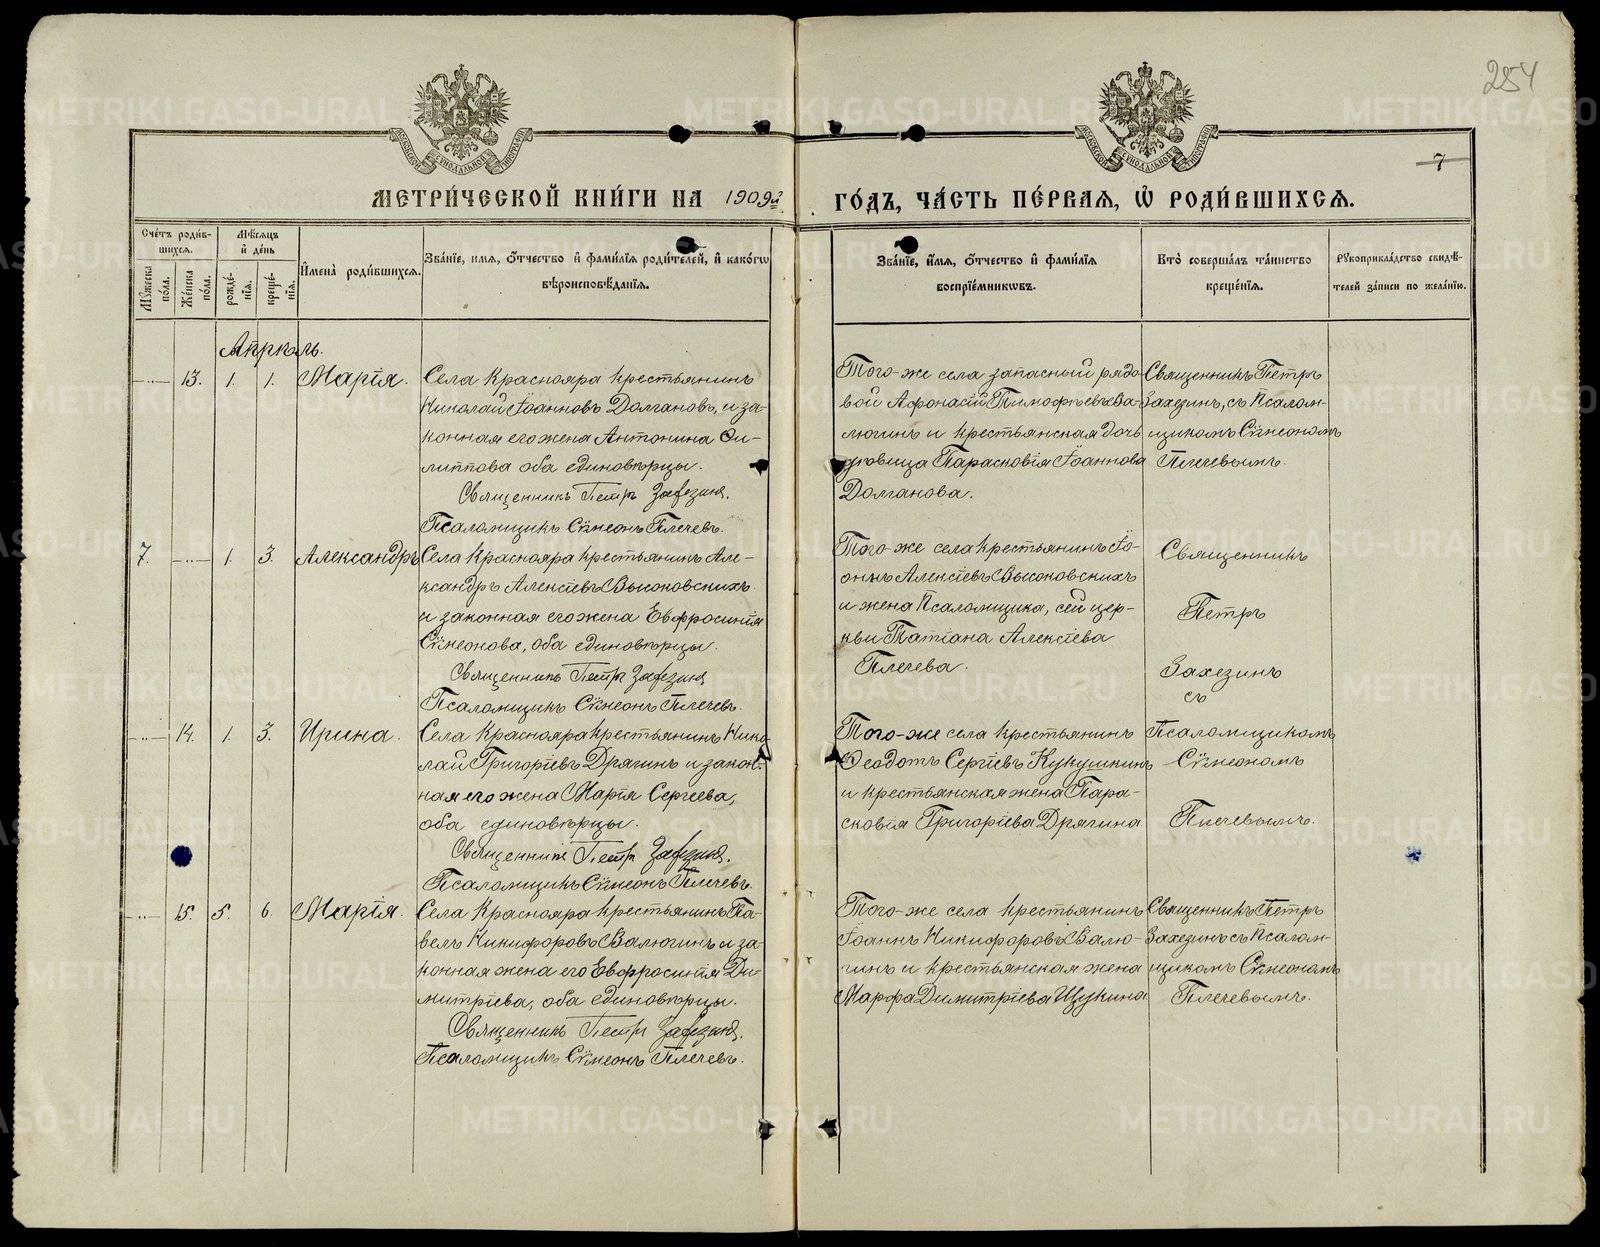 254
7
МЕТРИ́ЧЕСКОЙ КНИ́ГИ НА 1909й ГО́ДЪ, ЧА́СТЬ ПЕ́РВАЯ, Ѡ РОДИ́ВШИХСЯ.
Сче́тъ роди́в-
шихся.
Му́жеска
по́ла.
Же́нска
по́ла.
Мѣ́сяцъ
и де́нь
рожде́-
нія.
креще́-
нія.
Имена̀ роди́вшихся.
Зва́ніе, имя, о́тчество и фами́лія роди́телей, и како́гѡ
вѣроисповѣ́данія.
Зва́ніе, и́мя, о́тчество и фами́лія
воспріе́мникѡвъ.
Кто̀ соверша́лъ та́инство
креще́нія.
Рукоприкла́дство свидѣ́-
телей за́писи по жела́нію.
Апрѣль.
13. 1. 1. Марія.
Села Краснояра крестьянинъ
Николай Іоанновъ Долгановъ, и за-
конная его жена Антонина Фи-
липпова оба единовѣрцы.
Священникъ Петръ Захезинъ.
Псаломщикъ Сѵмеонъ Плечевъ.
Того-же села запасный рядо-
вой Афонасій Тимофѣевъ Ва-
люгинъ и крестьянская дочь
дѣвица Парасковія Іоаннова
Долганова.
Священникъ Петръ
Захезинъ, съ Псалом-
щикомъ Сѵмеономъ
Плечевымъ.
7. 1. 3. Александръ
Села Краснояра крестьянинъ Але-
ксандръ Алексіевъ Высоковскихъ
и законная его жена Евфросинія
Сѵмеонова, оба единовѣрцы.
Священникъ Петръ Захезинъ
Псаломщикъ Сѵмеонъ Плечевъ.
Того-же села крестьянинъ Іо-
аннъ Алексіевъ Высоковскихъ
и жена Псаломщика, сей цер-
кви Татіана Алексіева
Плечева.
Священникъ
Петръ
Захезинъ
съ
14. 1. 3. Ирина.
Села Краснояра крестьянинъ Нико-
лай Григоріевъ Дрягинъ и закон-
ная его жена Марія Сергіева,
оба единовѣрцы.
Священникъ Петръ Захезинъ.
Псаломщикъ Сѵмеонъ Плечевъ.
Того-же села крестьянинъ
Ѳеодотъ Сергіевъ Кукушкинъ
и крестьянская жена Пара-
сковія Григоріева Дрягина
Псаломщикомъ
Сѵмеономъ
Плечевымъ.
15. 5. 6. Марія.
Села Краснояра крестьянинъ Па-
велъ Никифоровъ Валюгинъ и за-
конная жена его Евфросинія Ди-
митріева, оба единовѣрцы.
Священникъ Петръ Захезинъ.
Псаломщикъ Сѵмеонъ Плечевъ.
Того-же села крестьянинъ
Іоаннъ Никифоровъ Валю-
гинъ и крестьянская жена
Марфа Димитріева Щукина
Священникъ Петръ
Захезинъ съ Псалом-
щикомъ Сѵмеономъ
Плечевымъ.
METRIKI.GASO-URAL.RU